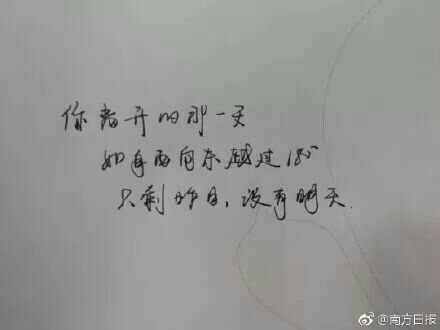 你离开的那一天
如自西向东越过180°
只剩昨日，没有明天.
@南方日报